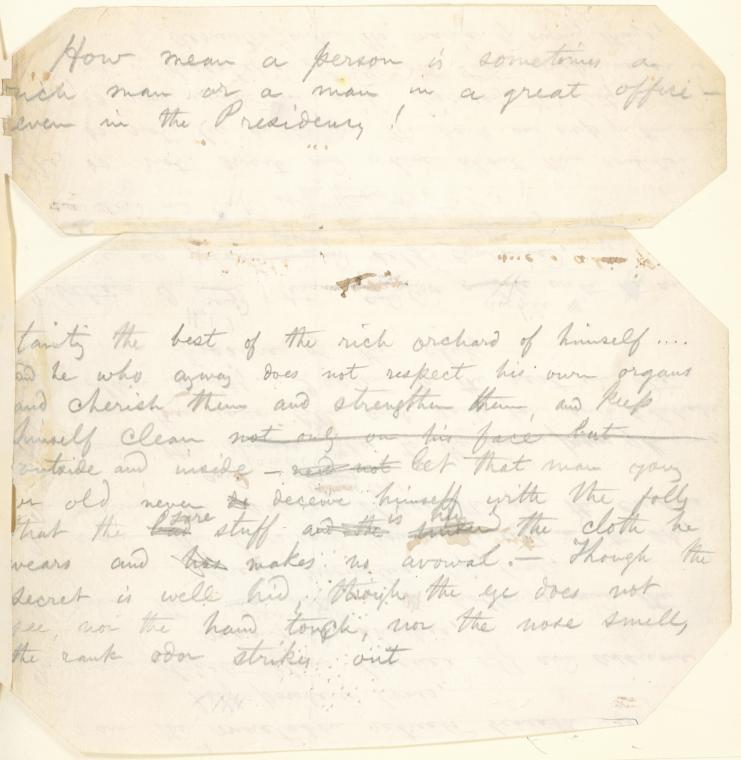 How mean a person is sometimes a
rich man or a man in a great office —
even in the Presidency!
tainty the best of the rich orchard of himself....
and he who anyway does not respect his own organs
and cherish them and strengthen them, and keep
himself clean not only on his face but
outside and inside — and not let that man young
or old never be deceive himself with the folly
that the bad sore stuff and the is hid the cloth he
wears and has makes no avowal. — Though the
secret is well hid, though the eye does not
see, nor the hand touch, nor the nose smell,
the rank odor strikes out